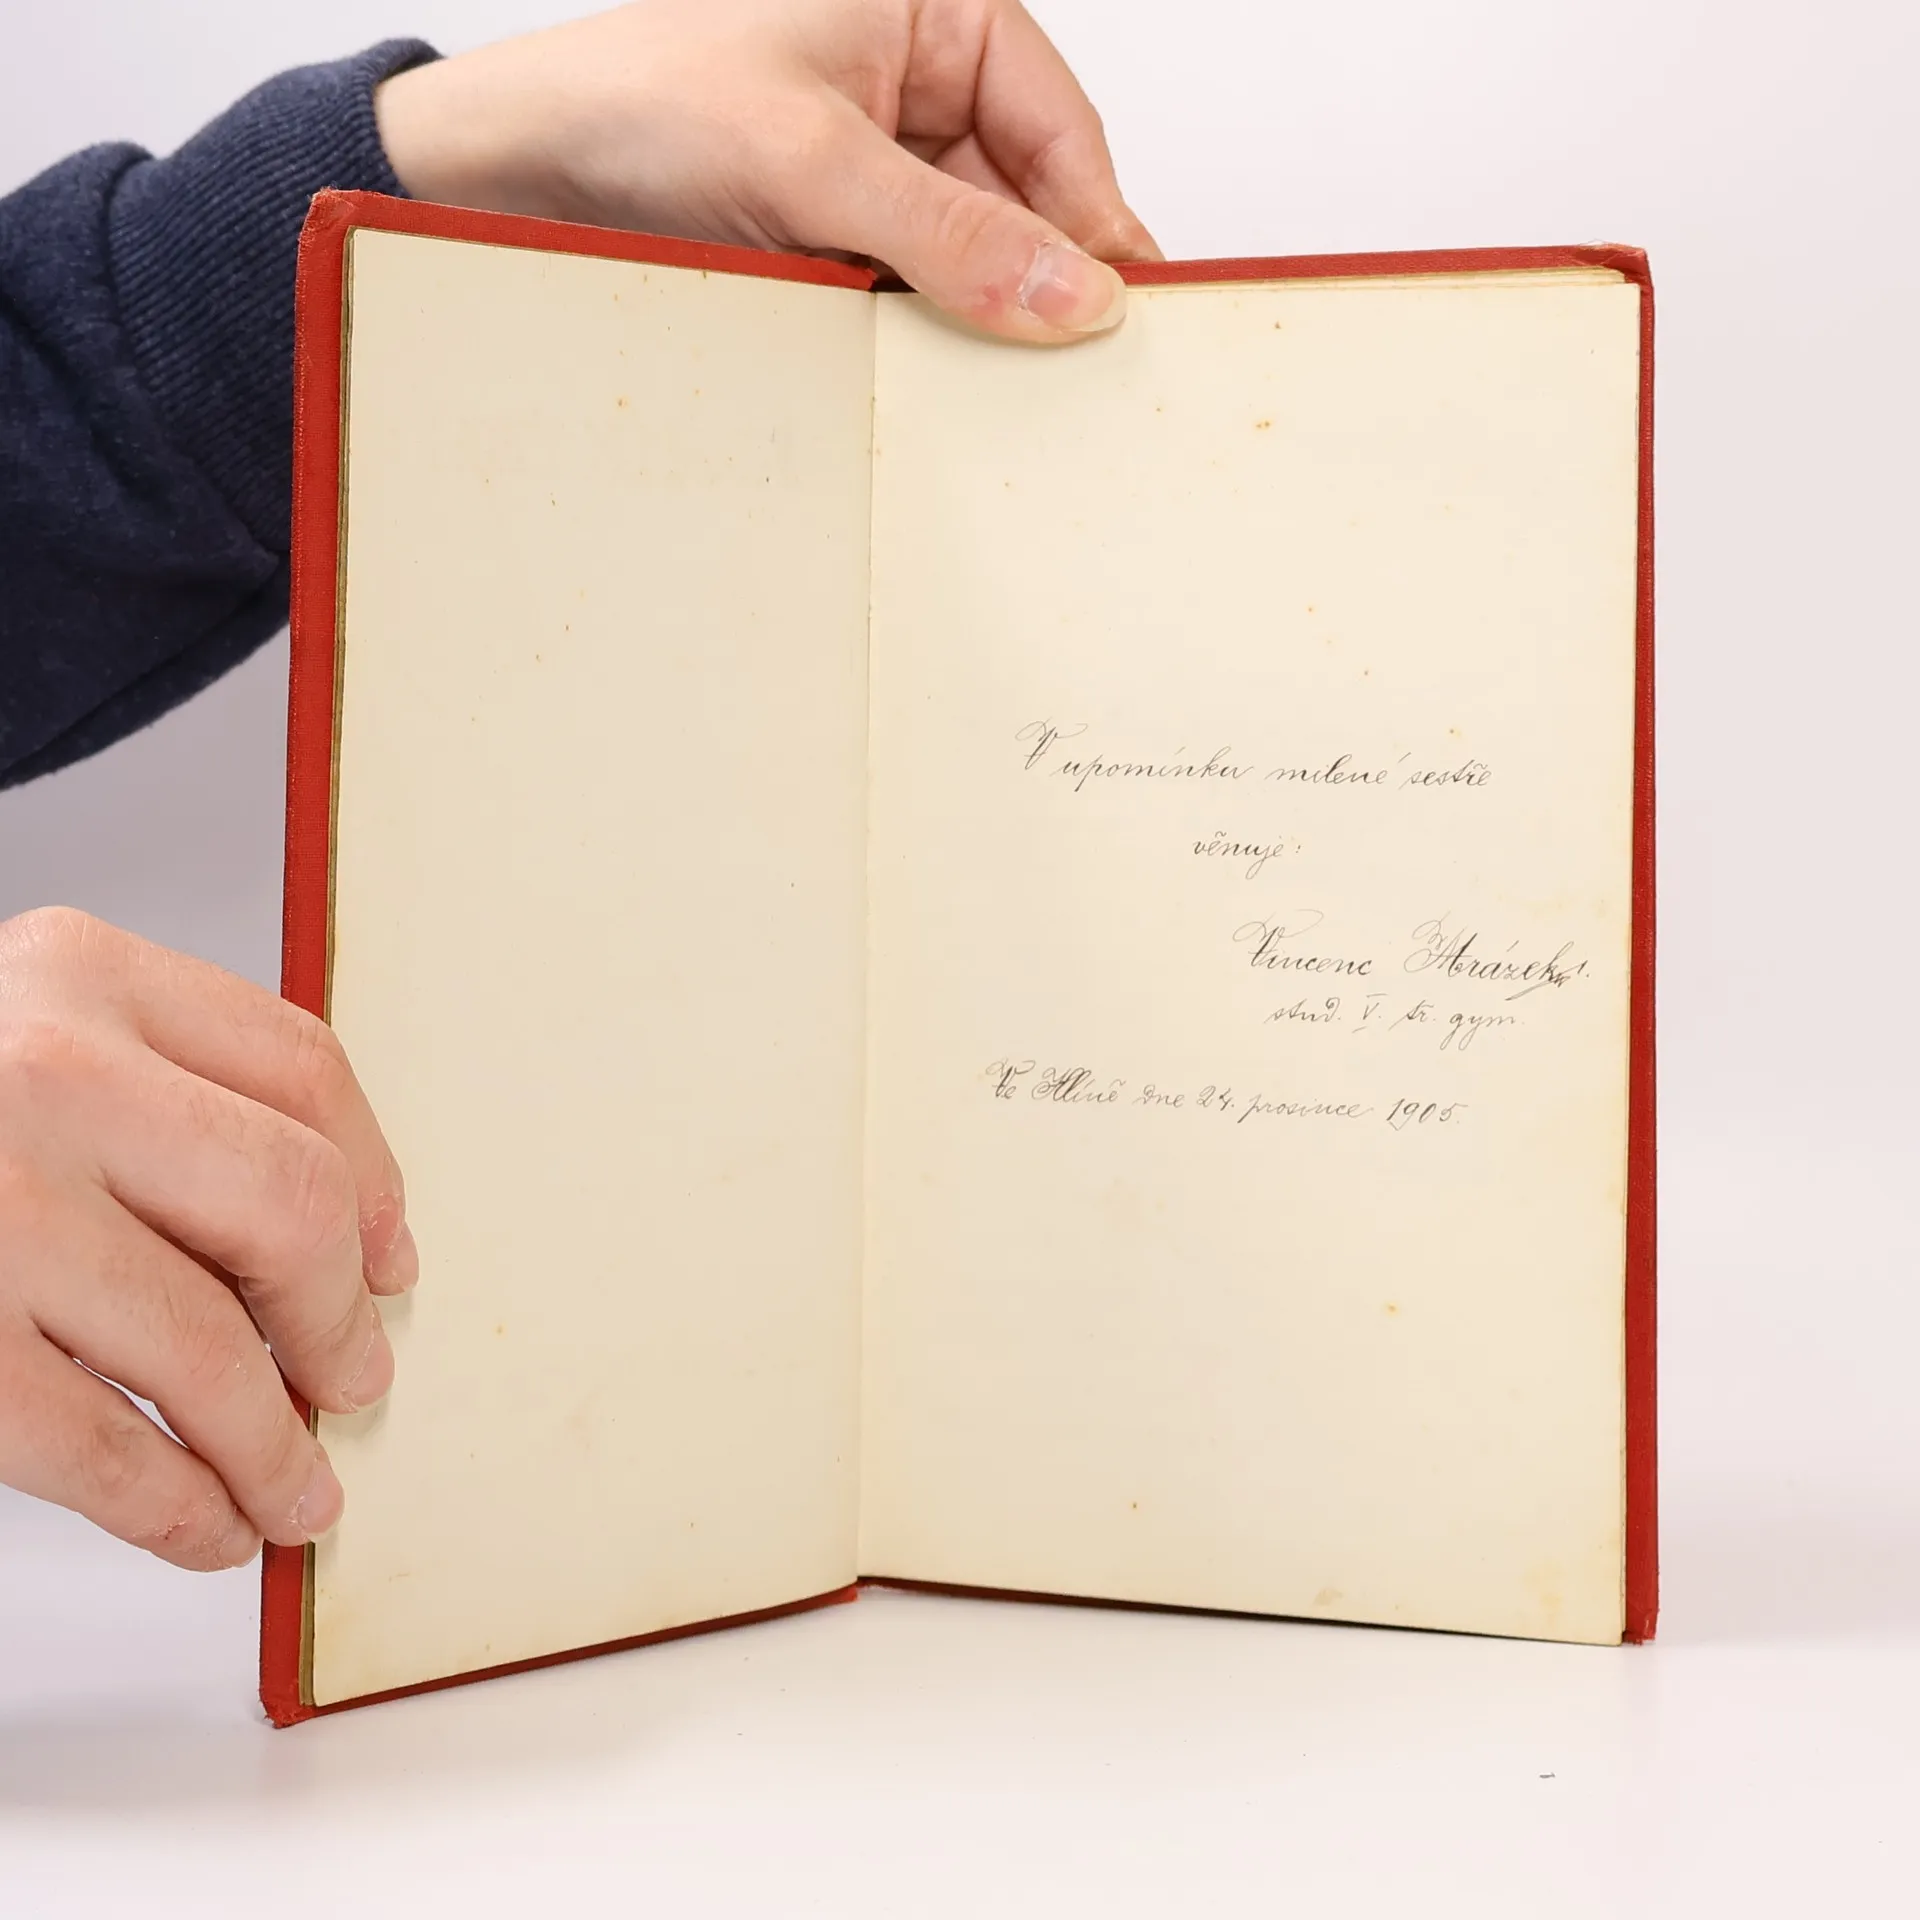 V upomínku milené sestře
věnuje:
Vincenc Mrázek
stud. V. tř. gym.
Ve dne 24. prosince 1905.